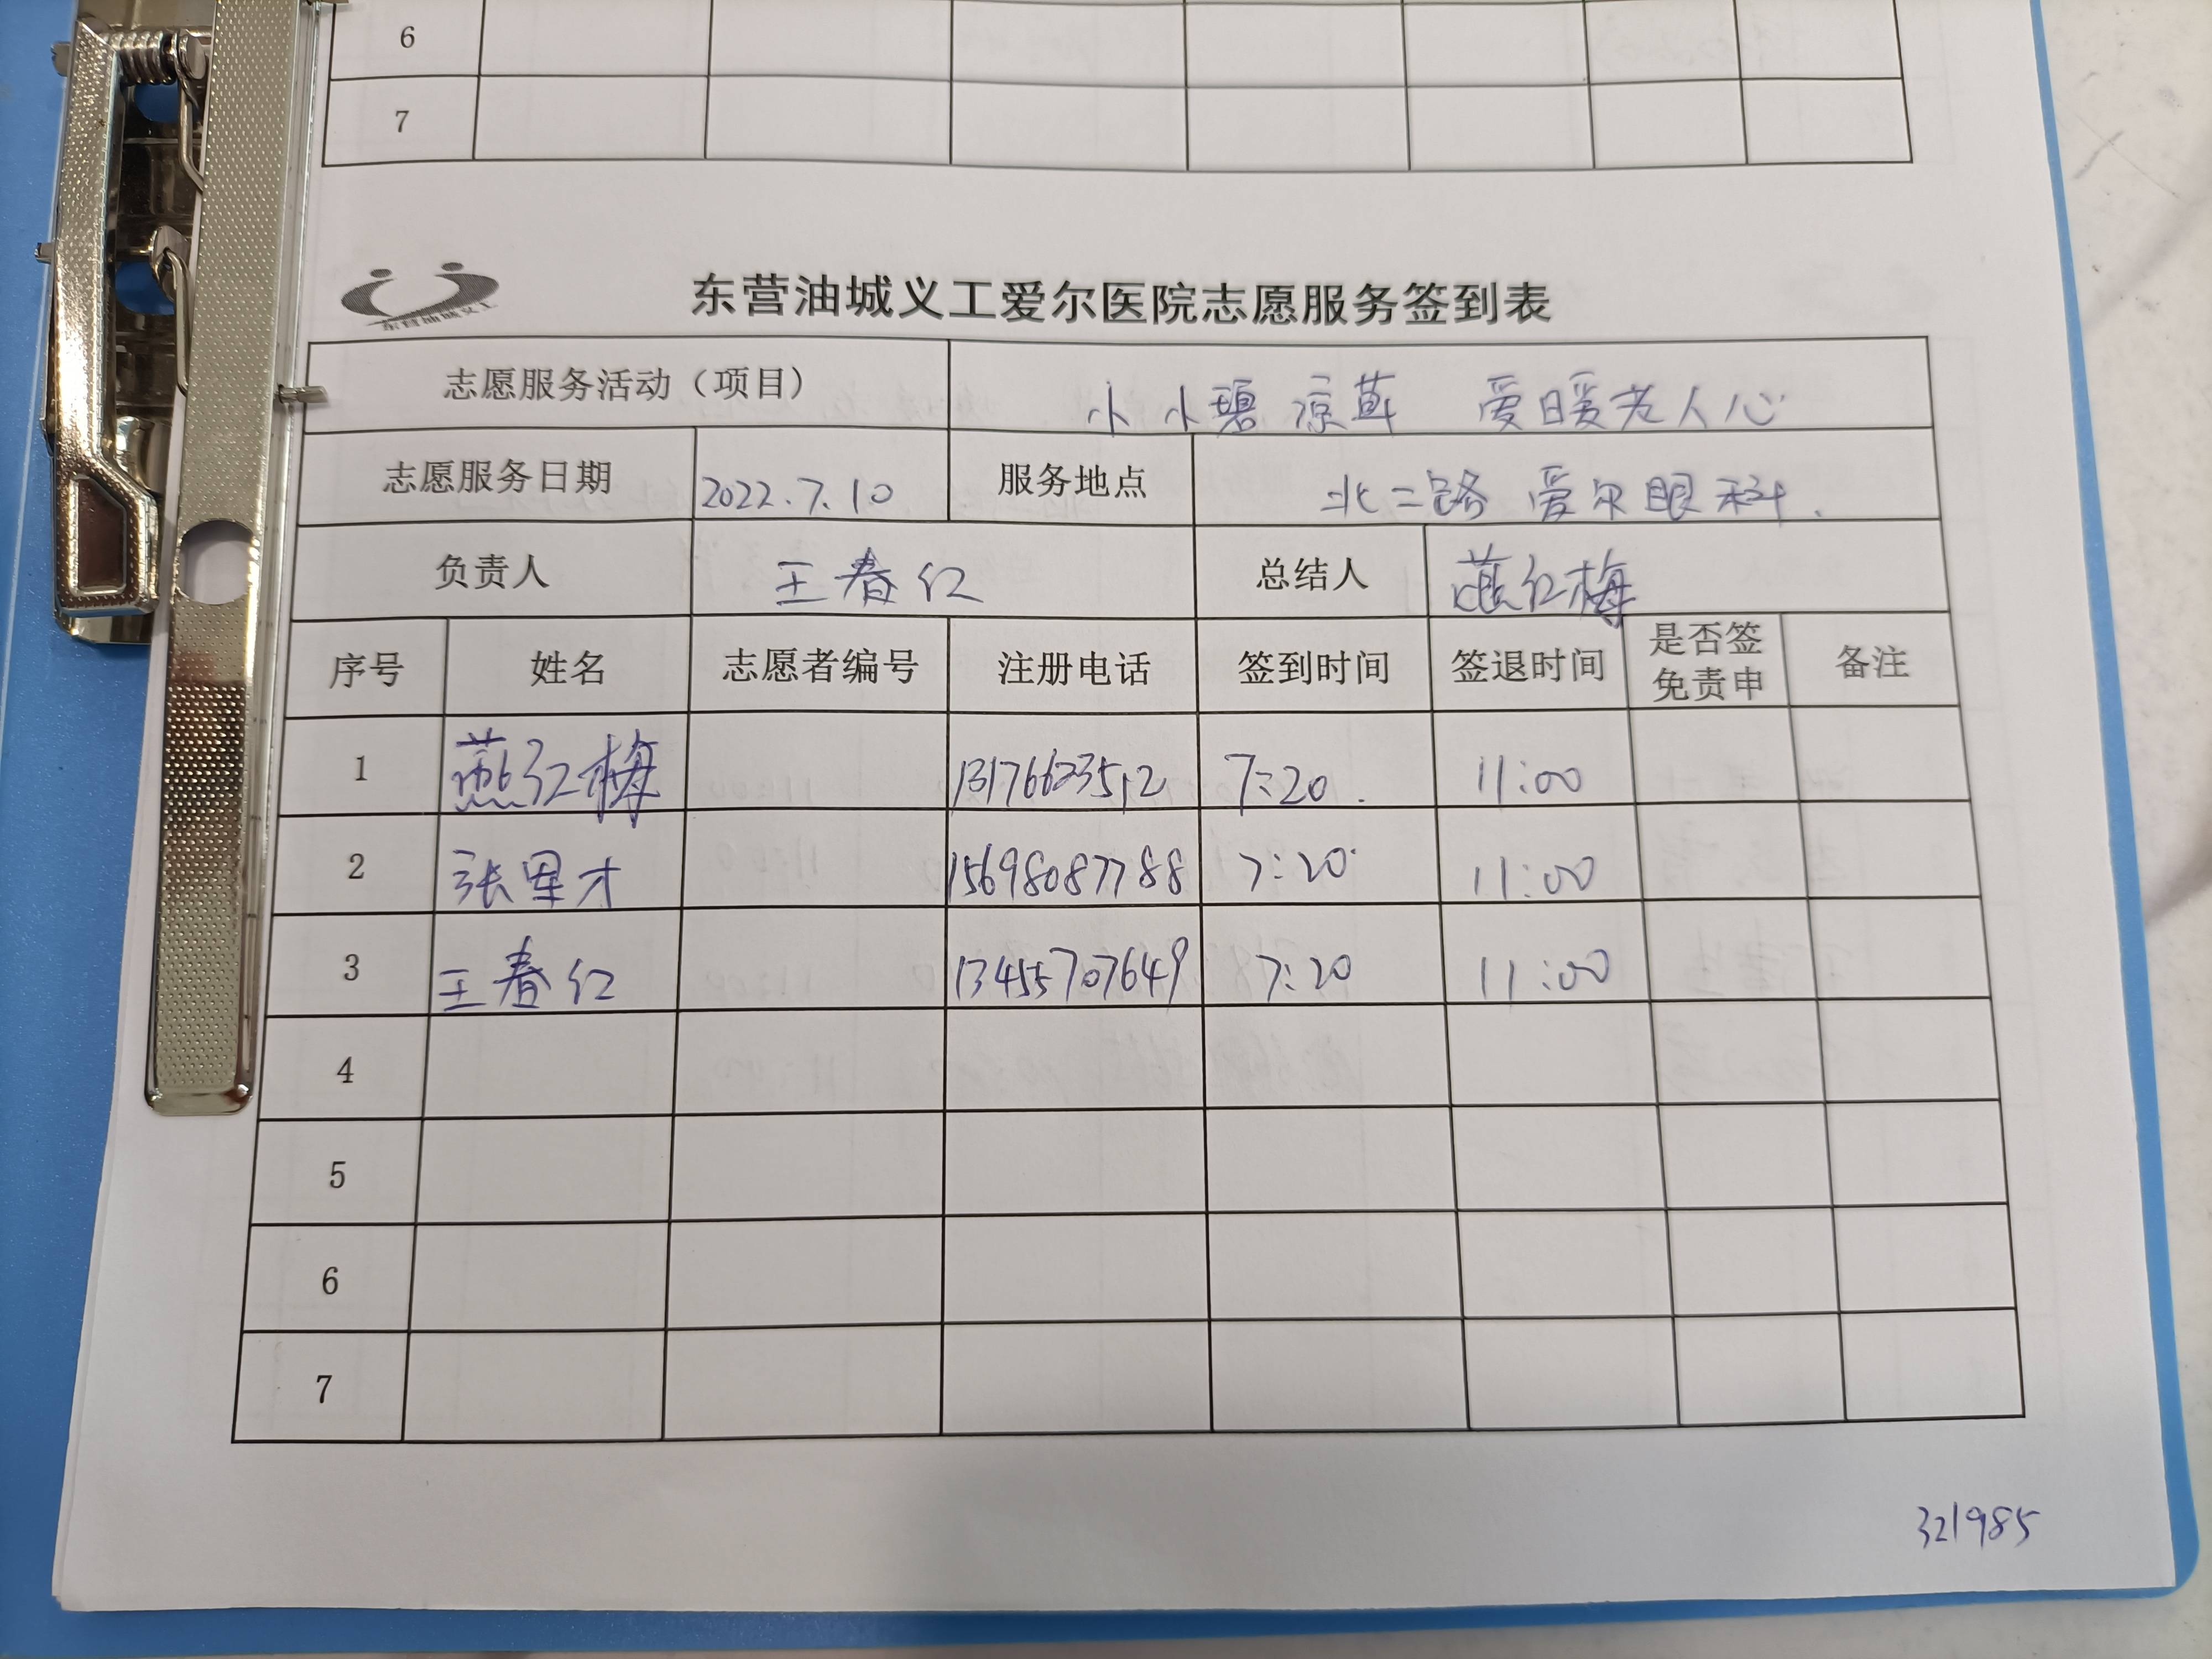 6
7
东营油城义工
东营油城义工爱尔医院志愿服务签到表
志愿服务活动（项目） 小小碧凉 爱暖老人心
志愿服务日期 2022.7.10 服务地点 北二路 爱尔眼科.
负责人 王春红 总结人 燕红梅
序号 姓名 志愿者编号 注册电话 签到时间 签退时间 是否签免责申 备注
1 燕红梅 7:20. 11:00
2 张军才 15698087788 7:20 11:00
3 王春红 13455707649 7:20 11:00
4
5
6
7
321985